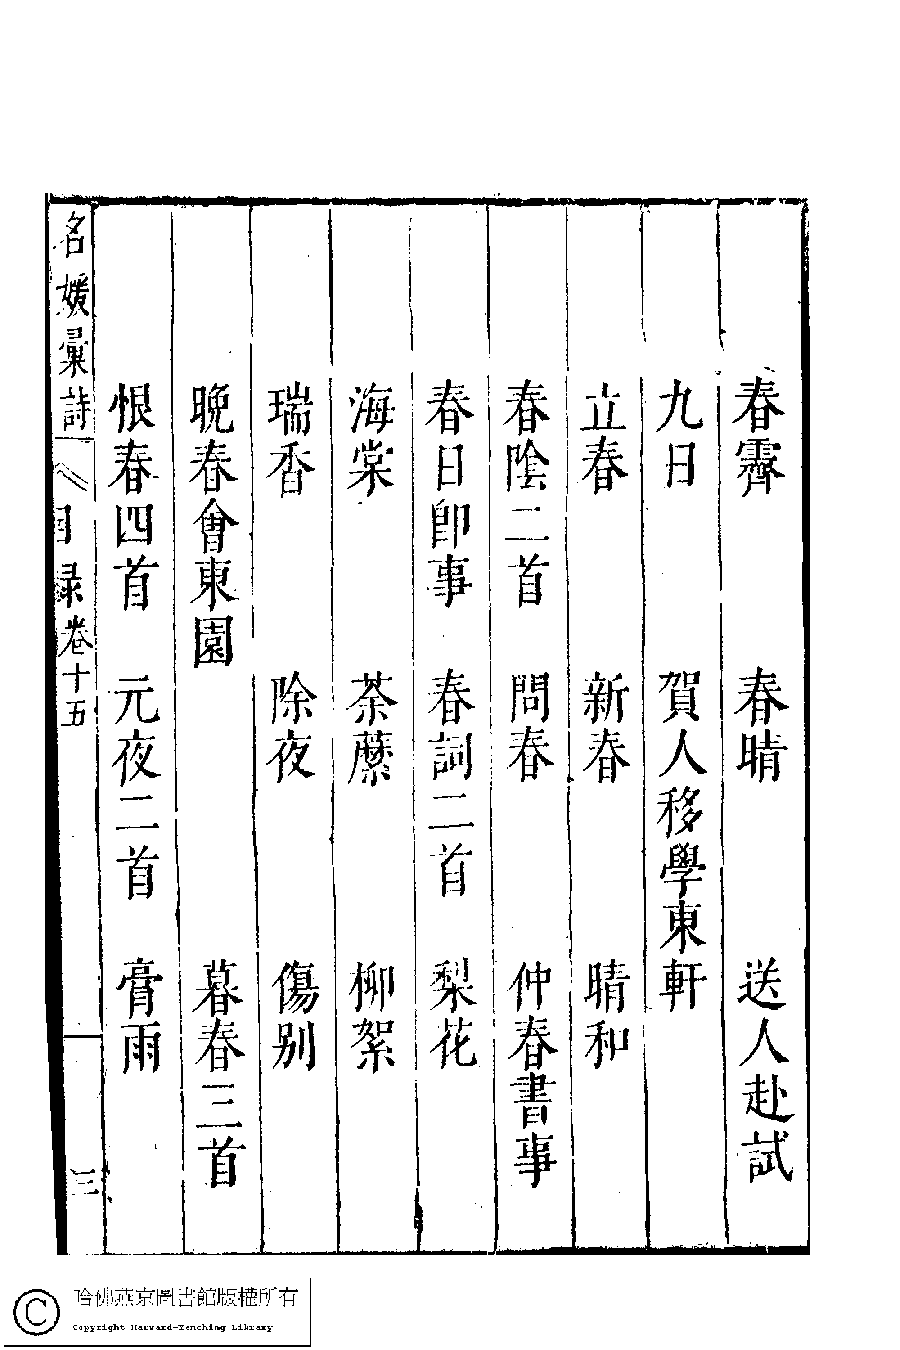 春霽　春晴　送人赴試
九日　賀人移學東軒
立春　新春　晴和
春陰二首　問春　仲春書事
春日卽事　春詞二首　梨花
海棠　荼䕷　柳絮
瑞香　除夜　傷别
晚春會東園　暮春三首
恨春四首　元夜二首　膏雨
名媛彙詩　目録卷十五　三
哈佛燕京圖書館版權所有
Copyright Harvard-Yenching Library